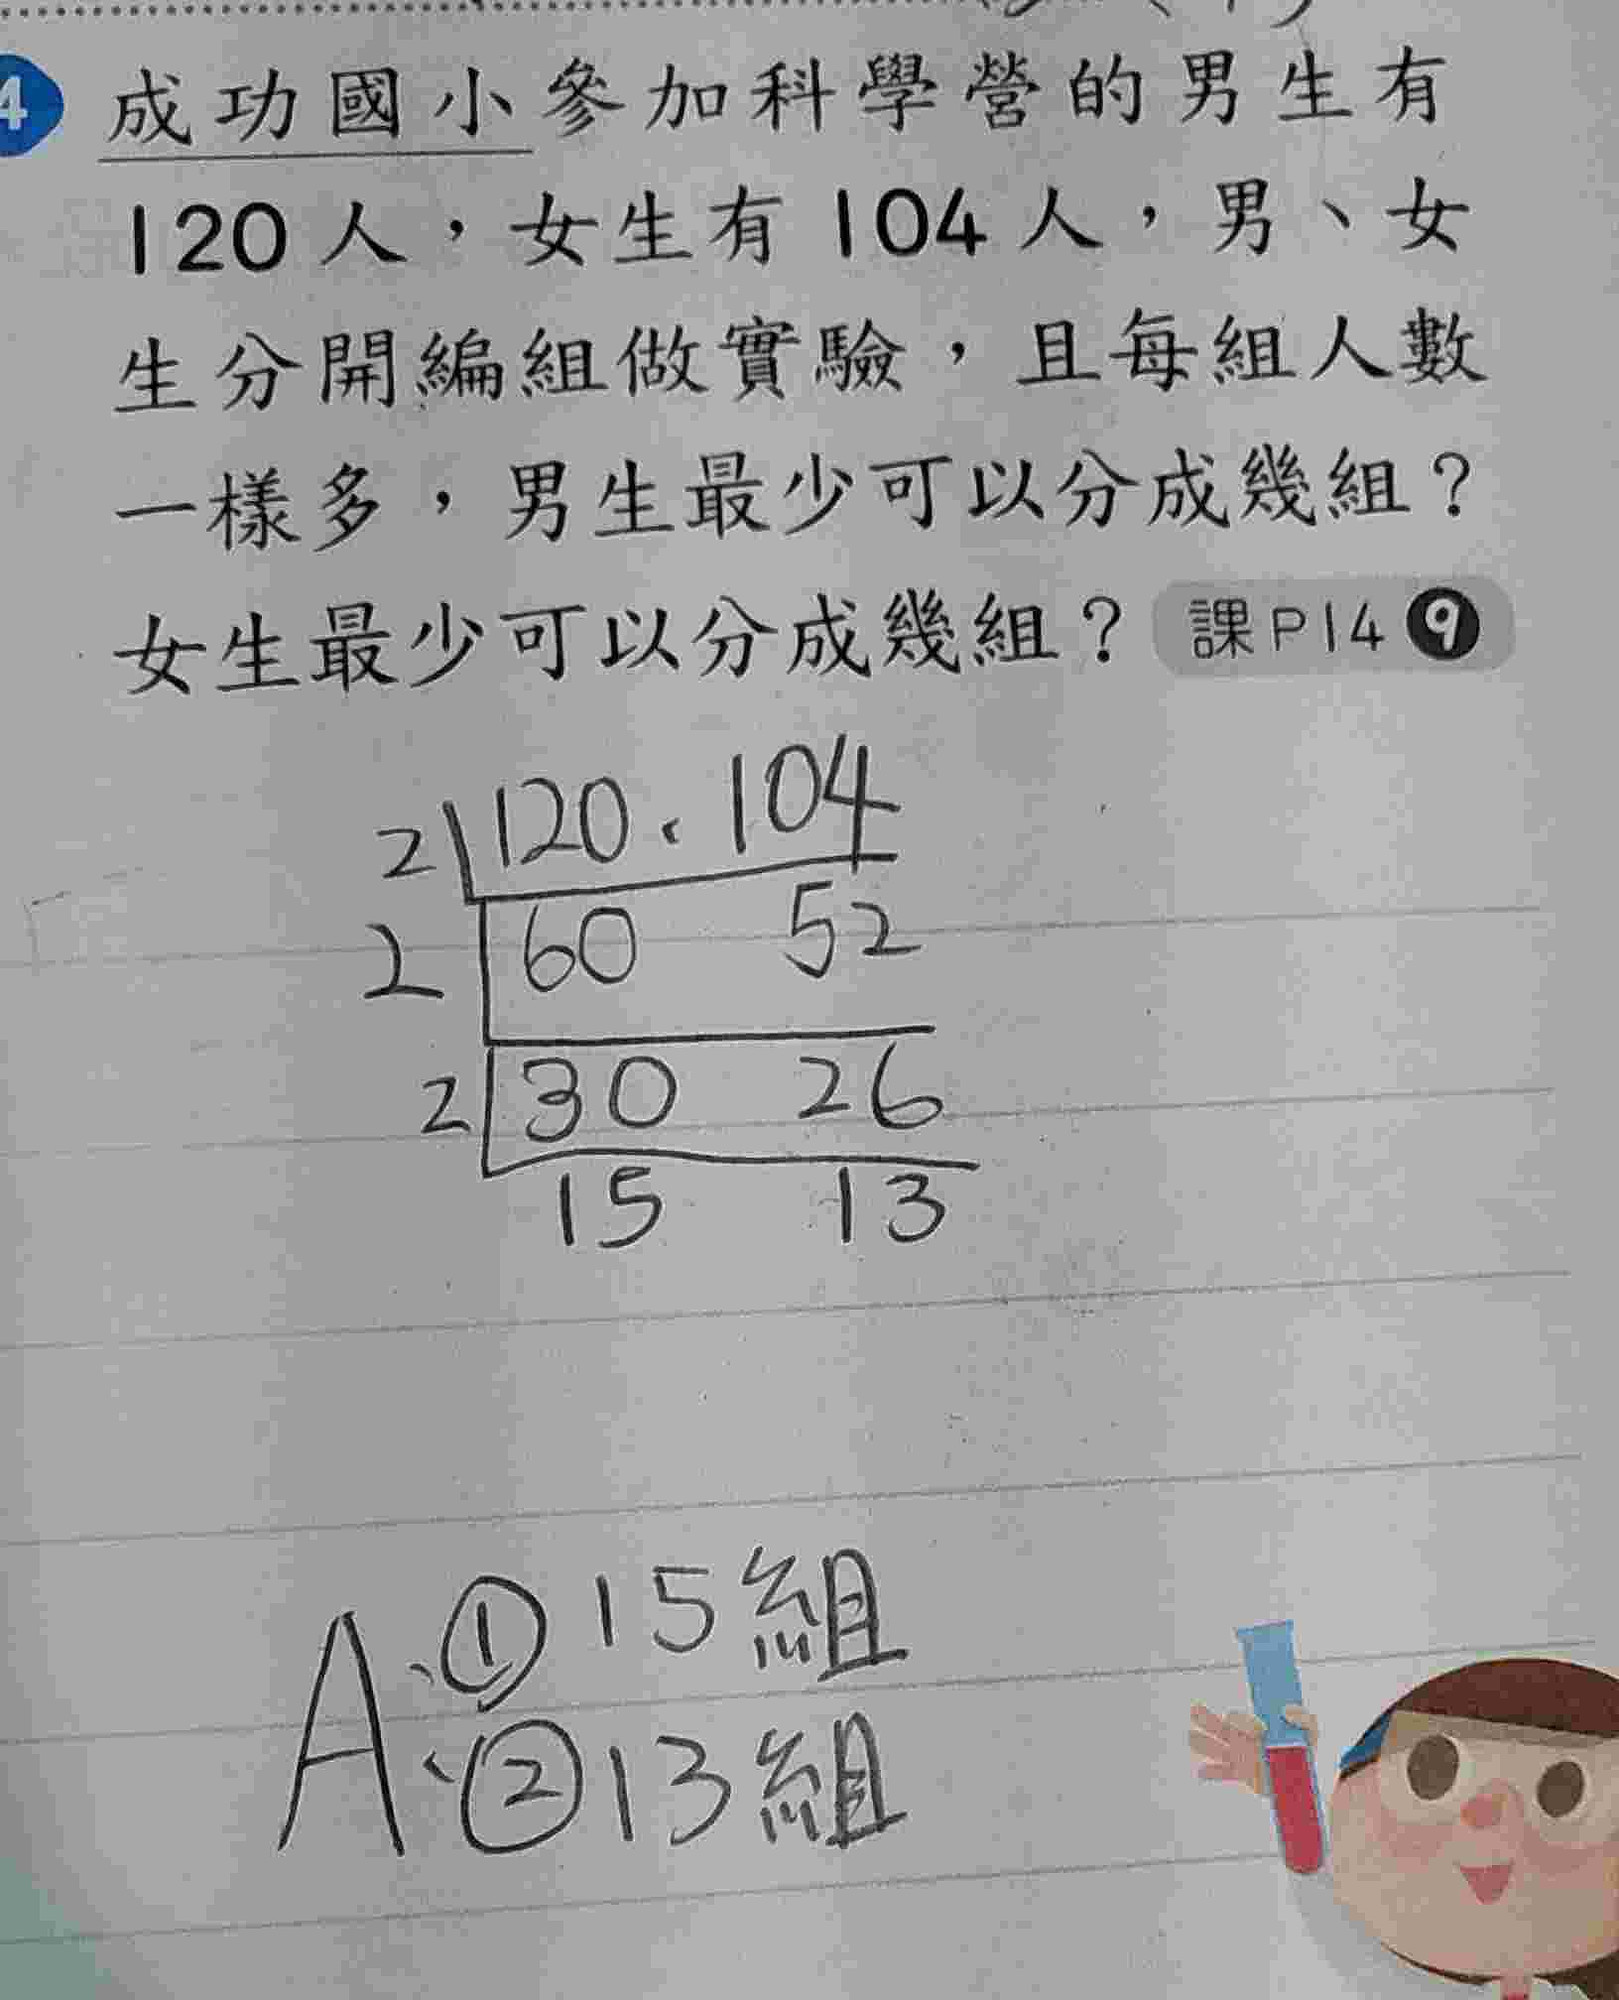 4 成功國小參加科學營的男生有
120人，女生有104人，男、女
生分開編組做實驗，且每組人數
一樣多，男生最少可以分成幾組？
女生最少可以分成幾組？ 課P14 9
2 120、104
2 60 52
2 30 26
15 13
A：① 15組
② 13組